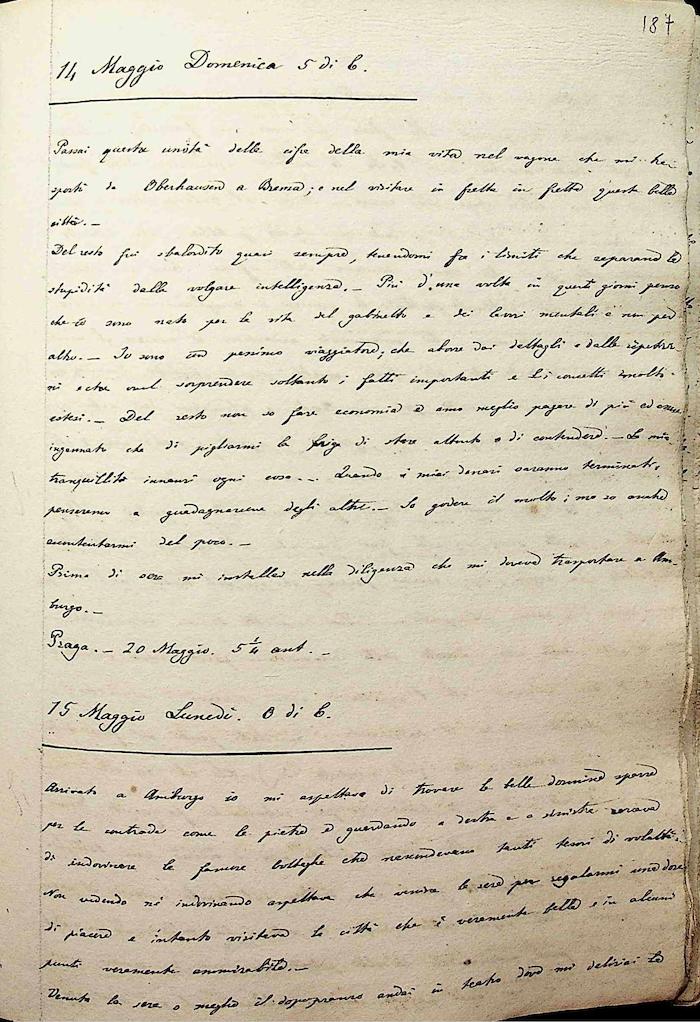 187
14 Maggio Domenica 5 di C.
Passai questa unità delle cifre della mia vita nel vagone che mi tra-
sportò da Oberhausen a Brema; e nel visitare in fretta in fretta questa bella
città. —
Del resto fui sbalordito quasi sempre, tenendomi fra i limiti che separano la
stupidità dalla volgare intelligenza. — Più d'una volta in questi giorni penso
che io sono nato per la vita del gabinetto e dei lavori mentali e non per
altro. — Io sono un pessimo viaggiatore, che aborre dai dettagli e dalle ripetizio-
ni e che vuol sorprendere soltanto i fatti importanti e li concetti
Del resto non so fare economia e amo meglio pagare di più ed essere
ingannato che di pigliarmi la briga di stare attento o di contendere. — La mia
tranquillità innanzi ogni cosa. — Quando i miei denari saranno terminati,
penseremo a guadagnarcene degli altri. — So godere il molto; ma so anche
accontentarmi del poco. —
Prima di sera mi installai nella diligenza che mi doveva trasportare a Am-
burgo. —
Praga. — 20 Maggio. 5¼ ant. —
15 Maggio Lunedì. 0 di C.
Arrivato a Amburgo io mi aspettava di trovare le belle donnine sparse
per le contrade come le pietre e guardando a destra e a sinistra cercava
di indovinare le famose botteghe che nascondevano tanti tesori di voluttà.
Non vedendo nè indovinando aspettava che venisse la sera per regalarmi
di piacere e intanto visitava la città che è veramente bella e in alcuni
punti veramente ammirabile. —
Venuta la sera o meglio il dopopranzo andai in teatro dove mi deliziai la